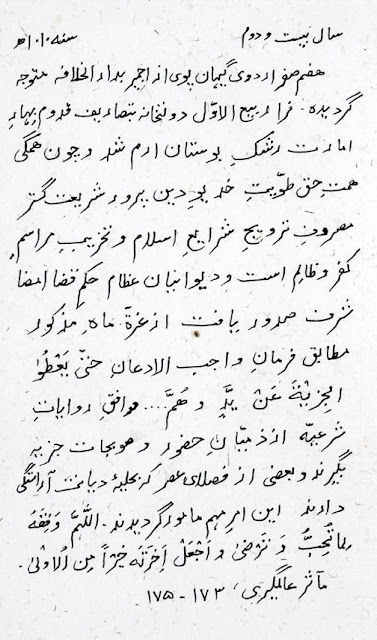 سال بیست و دوم سنه ۱۰۹۰ھ
هفتم صفر اردوی گیهان پوی از اجمیر بدار الخلافه متوجه
گردیده. غرۀ ربیع الاوّل دولتخانه بتصاریف قدوم بهار
امارت رشکِ بوستان ارم شد و چون همگی
همتِ حق طوّیتِ خدیوِ دین پرور شریعت گستر
مصروفِ ترویجِ شرایعِ اسلام و تخریبِ مراسمِ
کفر و ظالم است و دیوانیان عظام حکمِ قضا امضا
شرف صدور یافت از غرّۀ ماه مذکور
مطابق فرمانِ واجب الاذعانِ حتّیٰ یُعْطُوْا
الجِزْیَةَ عَنْ یَّدٍ وَ هُمْ .... موافقِ روایاتِ
شرعیّه از ذمّیّانِ حضور و صوبجات جزیه
بگیرند و بعضی از فضلای عصر که بحلیۀ دیانت آراستگی
دارند این امرِ مهم مامور گردیدند. اَللّٰهُمَّ وَفِّقْهُ
لِمَا تُحِبُّ وَ تَرْضیٰ وَ اجْعَلْ اٰخِرَتَهٗ خَیْراً مِنَ الْاُوْلیٰ.
مآثر عالمگیری، ۱۷۳ - ۱۷۵